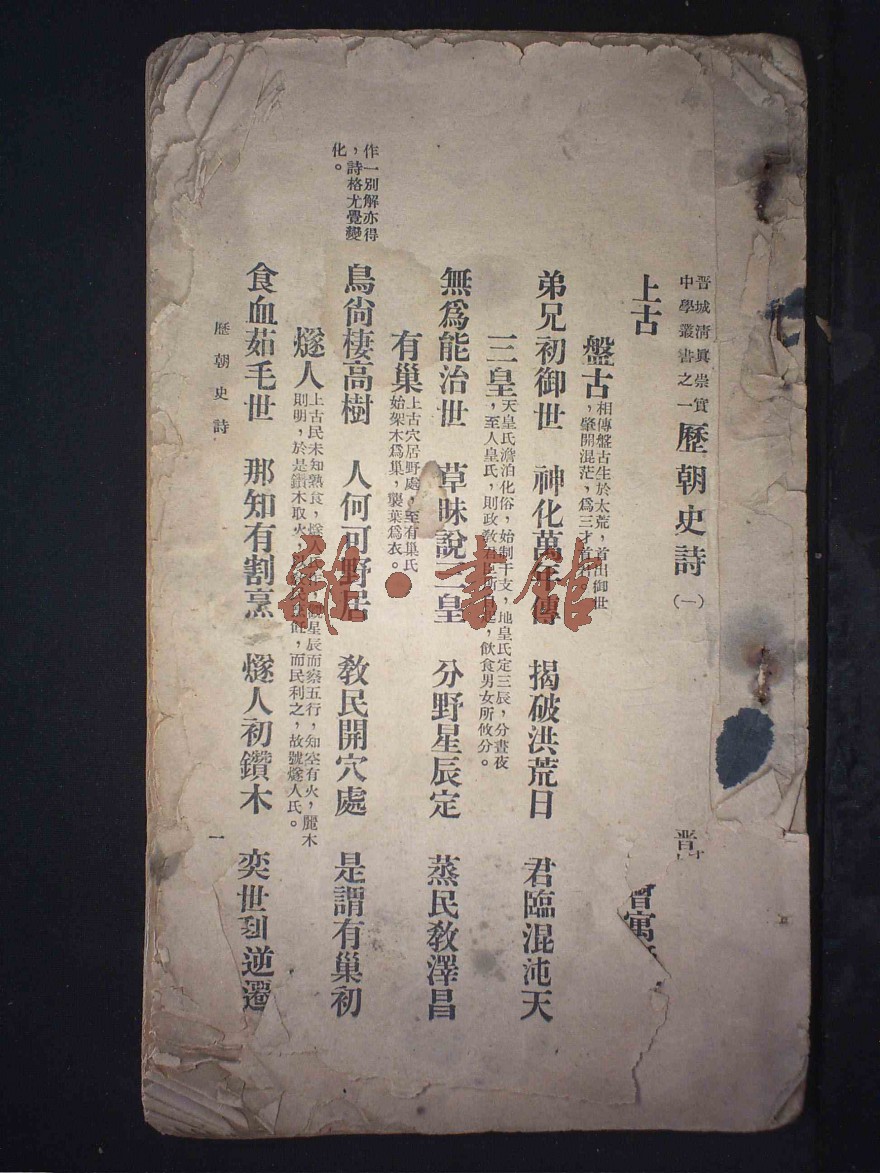 晋城清眞崇實
中學叢書之一
歷朝史詩(一)
晋
上古
晋寓
盤古
相傳盤古生於太荒,首出御世
,肇開混茫,爲三才首
弟兄初御世 神化萬年傳 揭破洪荒日 君臨混沌天
三皇
天皇氏澹泊化俗,始制干支,地皇氏定三辰,分晝夜
,至人皇氏,則政教君臣所自起,飲食男女所攸分。
無爲能治世 草昧說三皇 分野星辰定 蒸民敎澤昌
有巢
上古穴居野處,至有巢氏
始架木爲巢,襲葉爲衣。
作一別解亦得
,詩格尤覺變
化。
鳥尙棲高樹 人何可野居 敎民開穴處 是謂有巢初
燧人
上古民未知熟食,燧人氏作,觀星辰而察五行,知空有火,麗木
則明,於是鑽木取火,敎民烹飪,而民利之,故號燧人氏。
食血茹毛世 那知有割烹 燧人初鑽木 奕世到逆
歷朝史詩
一
雜·書館